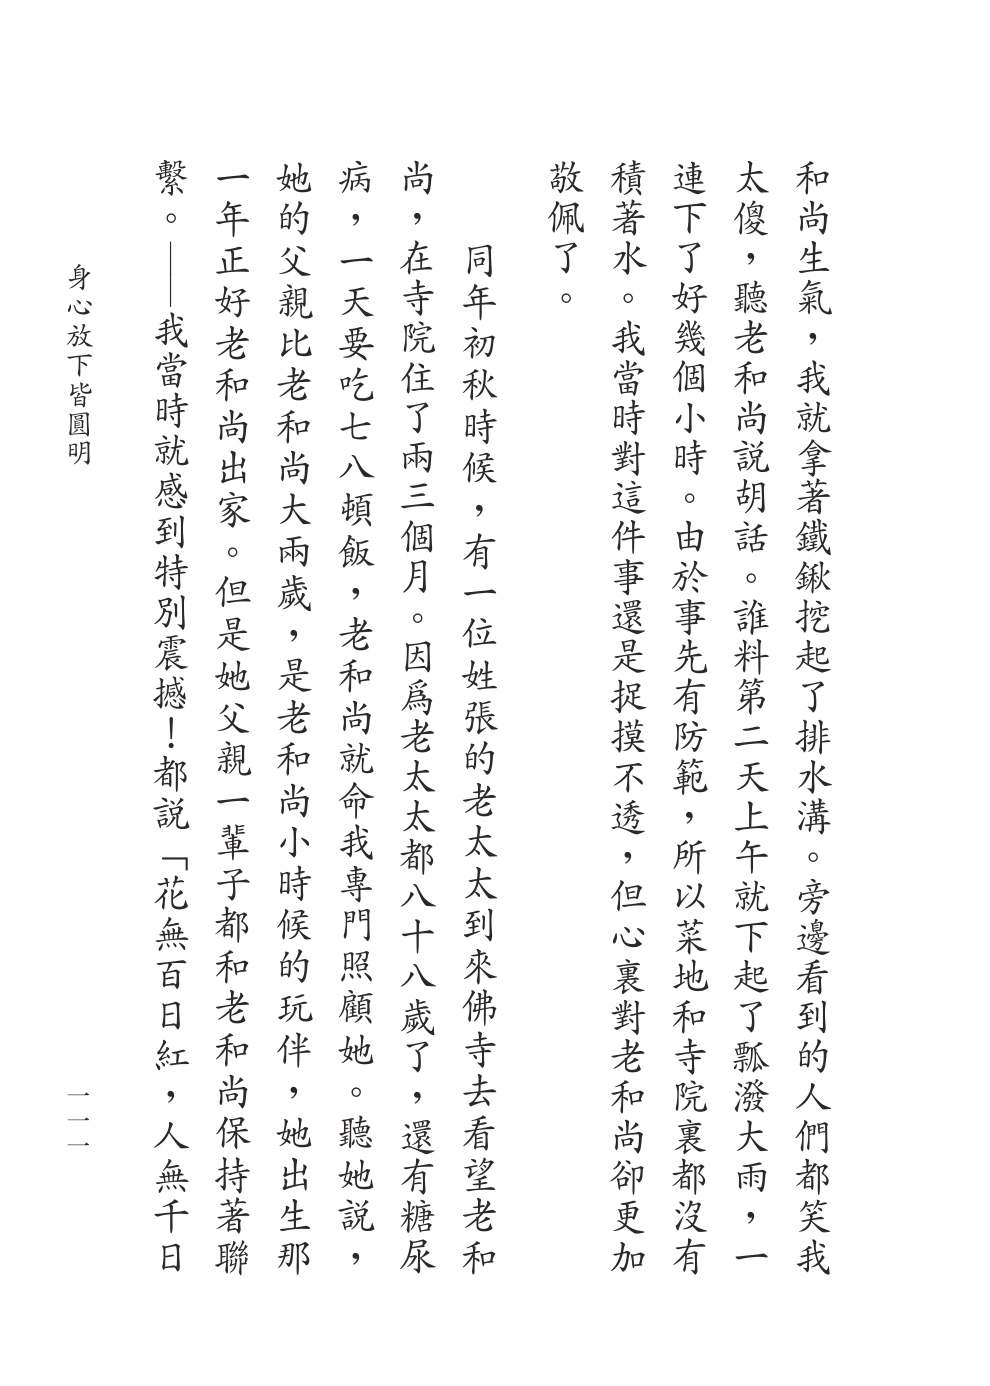 和尚生氣，我就拿著鐵鍬挖起了排水溝。旁邊看到的人們都笑我
太傻，聽老和尚說胡話。誰料第二天上午就下起了瓢潑大雨，一
連下了好幾個小時。由於事先有防範，所以菜地和寺院裏都沒有
積著水。我當時對這件事還是捉摸不透，但心裏對老和尚卻更加
敬佩了。
同年初秋時候，有一位姓張的老太太到來佛寺去看望老和
尚，在寺院住了兩三個月。因爲老太太都八十八歲了，還有糖尿
病，一天要吃七八頓飯，老和尚就命我專門照顧她。聽她說，
她的父親比老和尚大兩歲，是老和尚小時候的玩伴，她出生那
一年正好老和尚出家。但是她父親一輩子都和老和尚保持著聯
繫。——我當時就感到特別震撼！都說「花無百日紅，人無千日
身心放下皆圓明
一一一